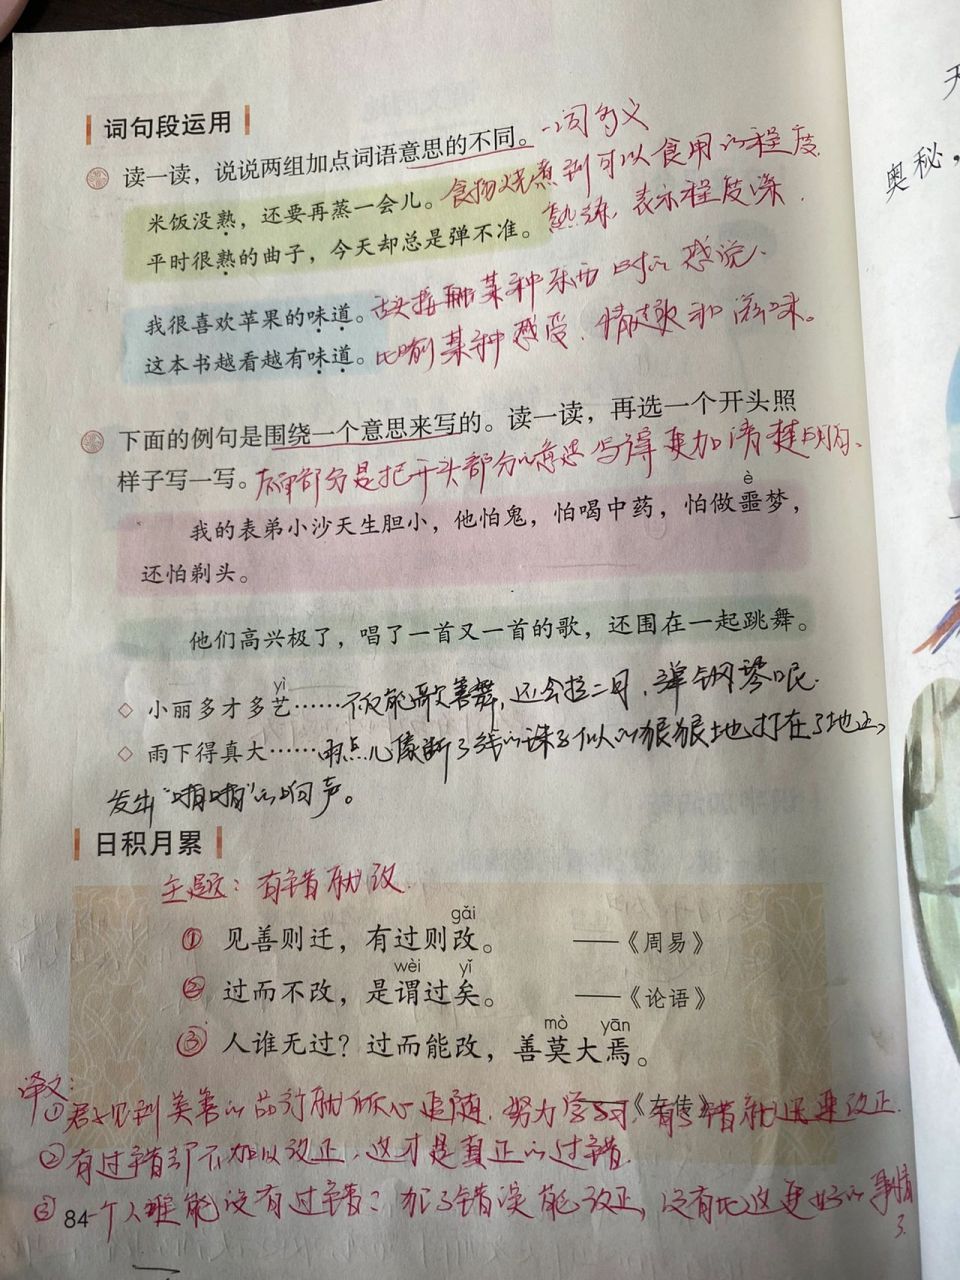 词句段运用
读一读，说说两组加点词语意思的不同。一词多义
米饭没熟，还要再蒸一会儿。食物烧煮到可以食用的程度.
平时很熟的曲子，今天却总是弹不准。熟练，表示程度深.
我很喜欢苹果的味道。舌头接触某种东西时的感觉.
这本书越看越有味道。比喻某种感受、情趣和滋味。
下面的例句是围绕一个意思来写的。读一读，再选一个开头照
样子写一写。后面部分是把开头部分的意思写得更加清楚明白、
è
我的表弟小沙天生胆小，他怕鬼，怕喝中药，怕做噩梦，
还怕剃头。
他们高兴极了，唱了一首又一首的歌，还围在一起跳舞。
yì
◇ 小丽多才多艺……不仅能歌善舞，还会拉二胡，弹钢琴呢.
◇ 雨下得真大……雨点儿像断了线的珠子似的狠狠地打在了地上，
发出“啪啪”的响声。
日积月累
主题：有错就改
gǎi
① 见善则迁，有过则改。 ——《周易》
wèi yǐ
② 过而不改，是谓过矣。 ——《论语》
mò yān
③ 人谁无过？过而能改，善莫大焉。
——《左传》
译文：
①君子见到美善的品行就倾心追随，努力学习，有了错就迅速改正.
②有过错却不加以改正，这才是真正的过错.
③一个人谁能没有过错？犯了错误能改正，没有比这更好的事情
了.
84
天
奥秘，